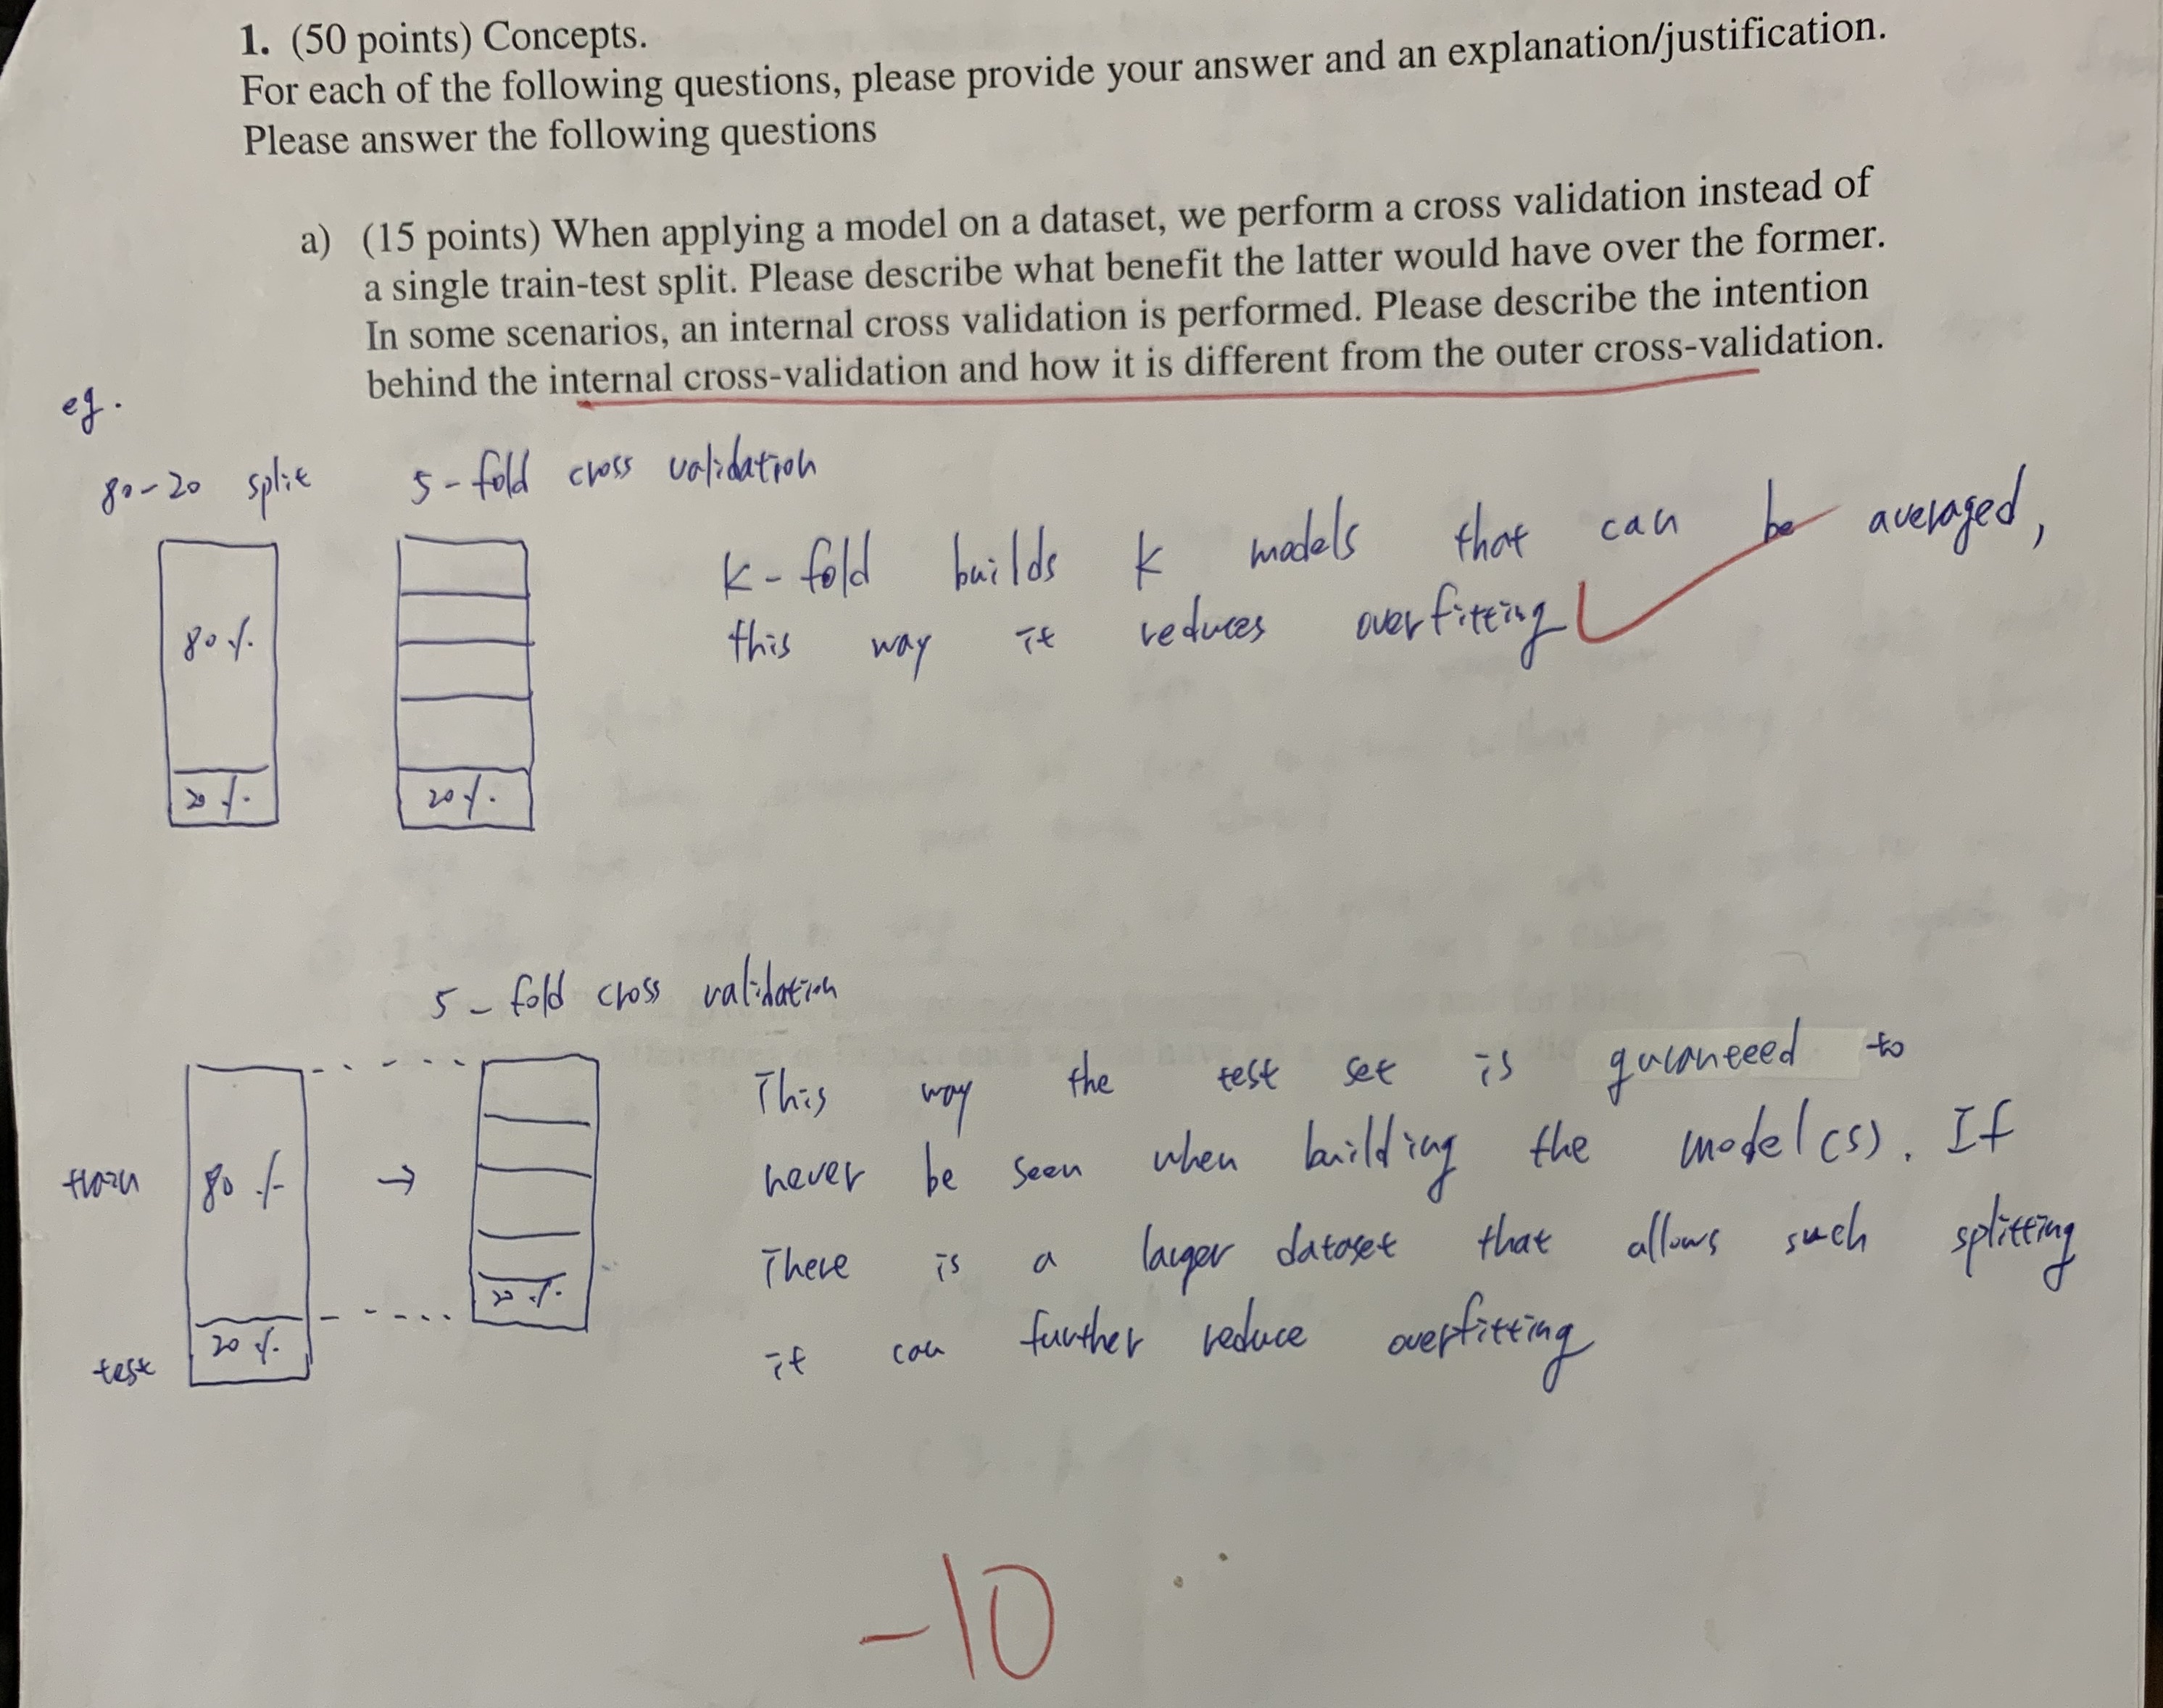 1. (50 points) Concepts.
For each of the following questions, please provide your answer and an explanation/justification.
Please answer the following questions
a) (15 points) When applying a model on a dataset, we perform a cross validation instead of
a single train-test split. Please describe what benefit the latter would have over the former.
In some scenarios, an internal cross validation is performed. Please describe the intention
behind the internal cross-validation and how it is different from the outer cross-validation.
eg.
80-20 split
5-fold cross validation
80%
20%
20%
K-fold builds K models that can be averaged,
this way it reduces overfitting
5-fold cross validation
train
80%
20%
test
20%
This way the test set is guranteeed to
never be seen when building the model(s). If
There is a larger dataset that allows such splitting
it can further reduce overfitting
-10